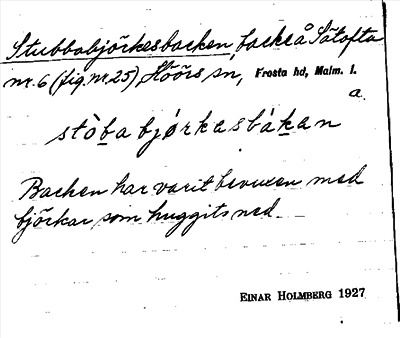 Stubbabjörkesbacken, backe å Sätofta
nr. 6 (fig. nr. 25) Höörs sn, Frosta hd, Malm. l.
a.
stòba bjørkasbákan
Backen har varit bevuxen med
björkar som huggits ned.
EINAR HOLMBERG 1927